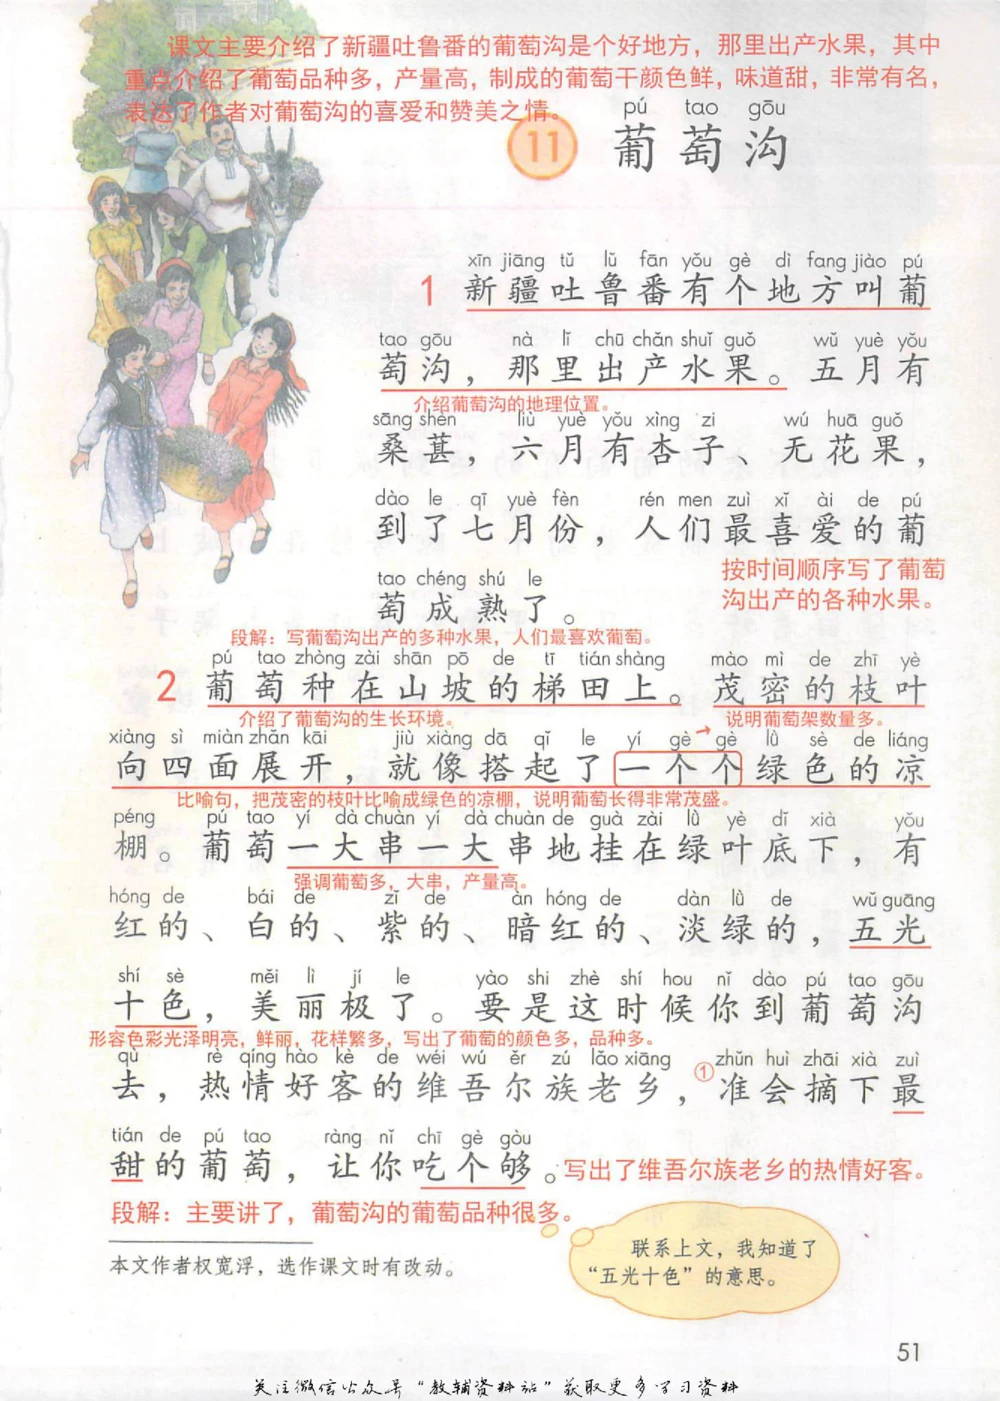 课文主要介绍了新疆吐鲁番的葡萄沟是个好地方，那里出产水果，其中
重点介绍了葡萄品种多，产量高，制成的葡萄干颜色鲜，味道甜，非常有名，
表达了作者对葡萄沟的喜爱和赞美之情。
pú tao gōu
11 葡萄沟
xīn jiāng tǔ lǔ fān yǒu gè dì fang jiào pú
1 新疆吐鲁番有个地方叫葡
tao gōu nà lǐ chū chǎn shuǐ guǒ wǔ yuè yǒu
萄沟，那里出产水果。五月有
介绍葡萄沟的地理位置。
sāng shèn liù yuè yǒu xìng zi wú huā guǒ
桑葚，六月有杏子、无花果，
dào le qī yuè fèn rén men zuì xǐ ài de pú
到了七月份，人们最喜爱的葡
tao chéng shú le
萄成熟了。
按时间顺序写了葡萄
沟出产的各种水果。
段解：写葡萄沟出产的多种水果，人们最喜欢葡萄。
pú tao zhòng zài shān pō de tī tián shàng mào mì de zhī yè
2 葡萄种在山坡的梯田上。茂密的枝叶
介绍了葡萄沟的生长环境。 说明葡萄架数量多。
xiàng sì miàn zhǎn kāi jiù xiàng dā qǐ le yí gè gè lǜ sè de liáng
向四面展开，就像搭起了一个个绿色的凉
比喻句，把茂密的枝叶比喻成绿色的凉棚，说明葡萄长得非常茂盛。
péng pú tao yí dà chuàn yí dà chuàn de guà zài lǜ yè dǐ xià yǒu
棚。葡萄一大串一大串地挂在绿叶底下，有
强调葡萄多，大串，产量高。
hóng de bái de zǐ de àn hóng de dàn lǜ de wǔ guāng
红的、白的、紫的、暗红的、淡绿的，五光
shí sè měi lì jí le yào shi zhè shí hou nǐ dào pú tao gōu
十色，美丽极了。要是这时候你到葡萄沟
形容色彩光泽明亮，鲜丽，花样繁多，写出了葡萄的颜色多，品种多。
qù rè qíng hào kè de wéi wú ěr zú lǎo xiāng zhǔn huì zhāi xià zuì
去，热情好客的维吾尔族老乡，①准会摘下最
tián de pú tao ràng nǐ chī gè gòu
甜的葡萄，让你吃个够。写出了维吾尔族老乡的热情好客。
段解：主要讲了，葡萄沟的葡萄品种很多。
本文作者权宽浮，选作课文时有改动。
联系上文，我知道了
“五光十色”的意思。
51
关注微信公众号“教辅资料站”获取更多学习资料